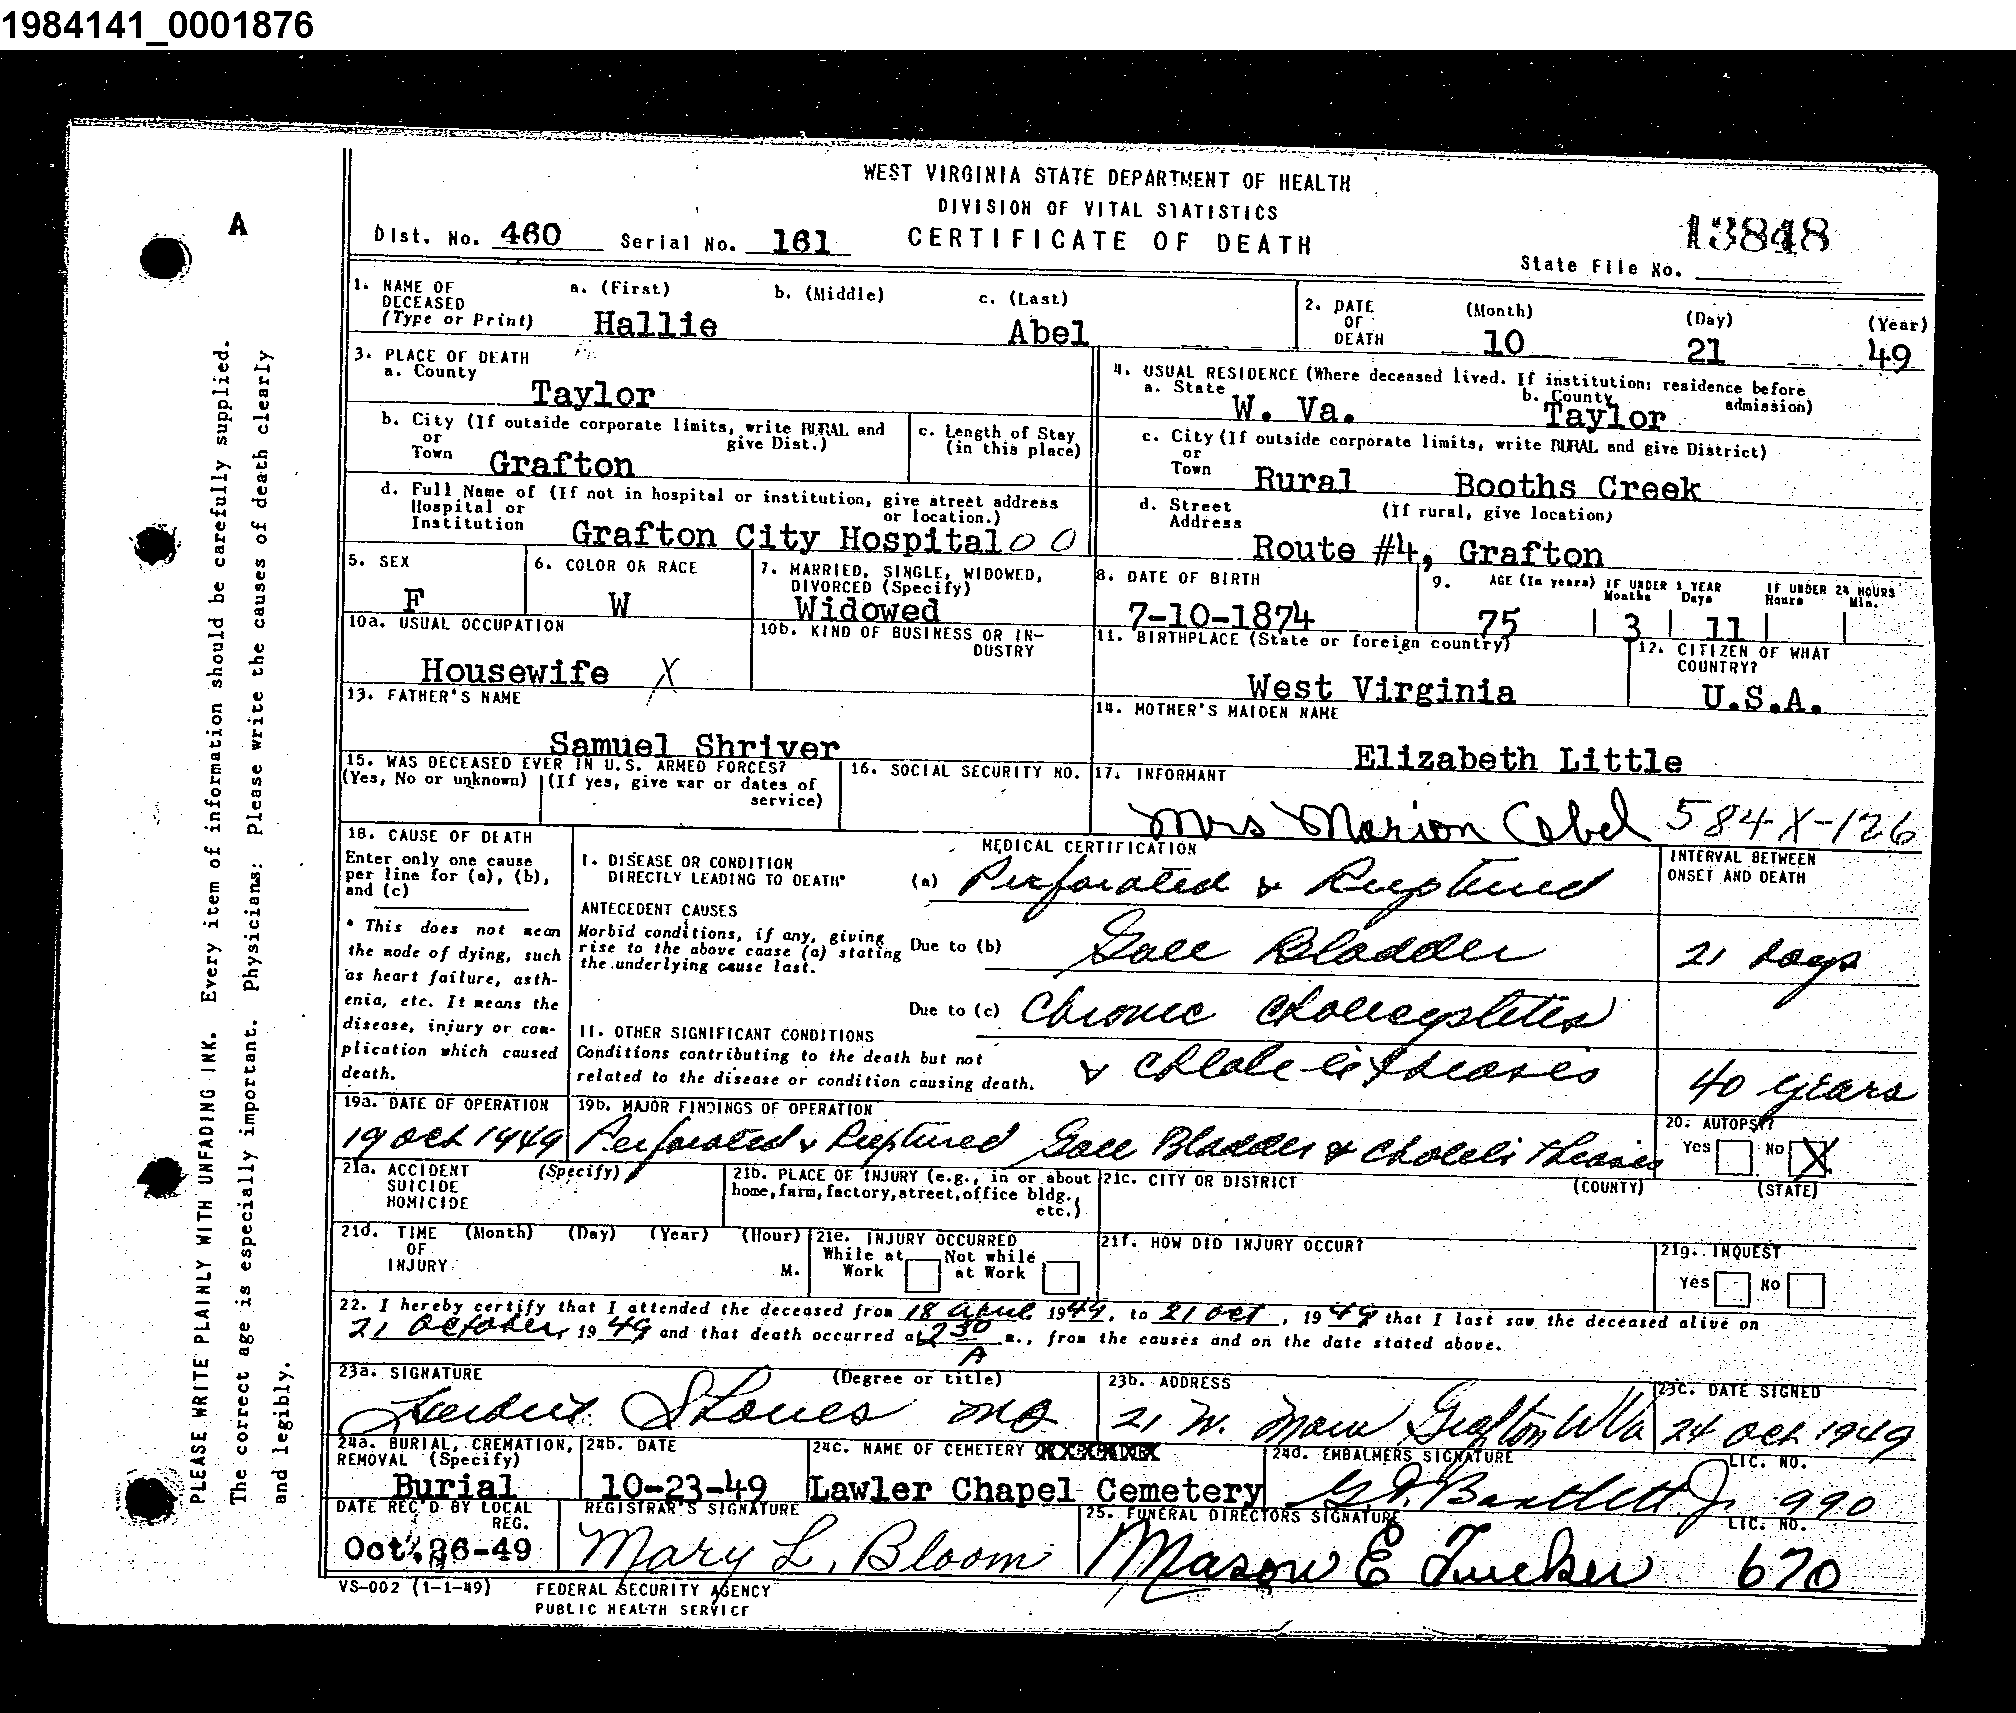 1984141_0001876
WEST VIRGINIA STATE DEPARTMENT OF HEALTH
DIVISION OF VITAL STATISTICS
A
Dist. No. 460 Serial No. 161 CERTIFICATE OF DEATH
13848
State File No.
1. NAME OF DECEASED (Type or Print) a. (First) b. (Middle) c. (Last)
Hallie Abel
2. DATE OF DEATH (Month) (Day) (Year)
10 21 49
3. PLACE OF DEATH
a. County
Taylor
4. USUAL RESIDENCE (Where deceased lived. If institution: residence before admission)
a. State W. Va. b. County Taylor
b. City (If outside corporate limits, write RURAL and give Dist.)
or Town Grafton
c. Length of Stay (in this place)
c. City (If outside corporate limits, write RURAL and give District)
or Town Rural Booths Creek
d. Full Name of (If not in hospital or institution, give street address or location.)
Hospital or Institution Grafton City Hospital 00
d. Street Address (If rural, give location)
Route #4, Grafton
5. SEX
F
6. COLOR OR RACE
W
7. MARRIED, SINGLE, WIDOWED, DIVORCED (Specify)
Widowed
8. DATE OF BIRTH
7-10-1874
9. AGE (In years) IF UNDER 1 YEAR Months Days IF UNDER 24 HOURS Hours Min.
75 3 11
10a. USUAL OCCUPATION
Housewife X
10b. KIND OF BUSINESS OR INDUSTRY
11. BIRTHPLACE (State or foreign country)
West Virginia
12. CITIZEN OF WHAT COUNTRY?
U.S.A.
13. FATHER'S NAME
Samuel Shriver
14. MOTHER'S MAIDEN NAME
Elizabeth Little
15. WAS DECEASED EVER IN U.S. ARMED FORCES?
(Yes, No or unknown) (If yes, give war or dates of service)
16. SOCIAL SECURITY NO.
17. INFORMANT
Mrs Marion Abel 584X-126
18. CAUSE OF DEATH
Enter only one cause per line for (a), (b), and (c)
* This does not mean the mode of dying, such as heart failure, asthenia, etc. It means the disease, injury or complication which caused death.
MEDICAL CERTIFICATION
INTERVAL BETWEEN ONSET AND DEATH
I. DISEASE OR CONDITION DIRECTLY LEADING TO DEATH*
(a) Perforated & Ruptured
ANTECEDENT CAUSES
Morbid conditions, if any, giving rise to the above cause (a) stating the underlying cause last.
Due to (b) Gall Bladder 21 days
Due to (c) Chronic Cholecystitis
II. OTHER SIGNIFICANT CONDITIONS
Conditions contributing to the death but not related to the disease or condition causing death.
& Cholelithiasis 40 years
19a. DATE OF OPERATION
19 Oct 1949
19b. MAJOR FINDINGS OF OPERATION
Perforated & Ruptured Gall Bladder & Cholelithiasis
20. AUTOPSY?
Yes No X
21a. ACCIDENT SUICIDE HOMICIDE (Specify)
21b. PLACE OF INJURY (e.g., in or about home, farm, factory, street, office bldg., etc.)
21c. CITY OR DISTRICT (COUNTY) (STATE)
21d. TIME OF INJURY (Month) (Day) (Year) (Hour) M.
21e. INJURY OCCURRED
While at Work Not while at Work
21f. HOW DID INJURY OCCUR?
21g. INQUEST
Yes No
22. I hereby certify that I attended the deceased from 18 April 1944, to 21 Oct, 1949 that I last saw the deceased alive on
21 October, 1949 and that death occurred at 2 30 A m., from the causes and on the date stated above.
23a. SIGNATURE (Degree or title)
Stones MD
23b. ADDRESS
21 W. Main Grafton W Va
23c. DATE SIGNED
24 Oct 1949
24a. BURIAL, CREMATION, REMOVAL (Specify)
Burial
24b. DATE
10-23-49
24c. NAME OF CEMETERY
Lawler Chapel Cemetery
24d. EMBALMERS SIGNATURE LIC. NO.
Bartlett Jr 990
DATE REC'D BY LOCAL REG.
Oct. 26-49
REGISTRAR'S SIGNATURE
Mary L. Bloom
25. FUNERAL DIRECTORS SIGNATURE LIC. NO.
Mason E Tucker 670
VS-002 (1-1-49) FEDERAL SECURITY AGENCY
PUBLIC HEALTH SERVICE
PLEASE WRITE PLAINLY WITH UNFADING INK. Every item of information should be carefully supplied.
The correct age is especially important. Physicians: Please write the causes of death clearly
and legibly.